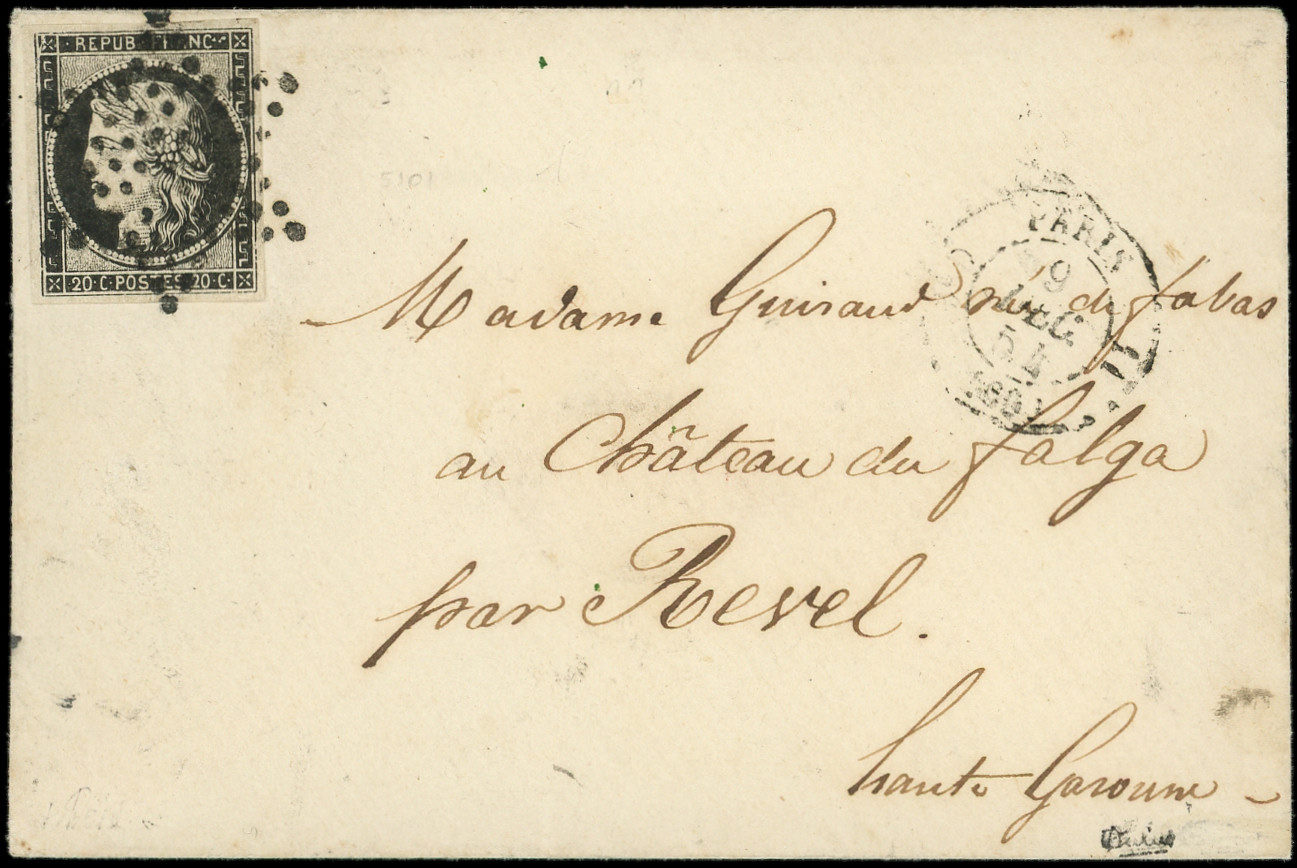 REPUB FRANC
20·C·POSTES·20·C·
PARIS
9
DEC.
54
(60)
Madame Guiraud née de fabas
au Château du falga
par Revel.
haute Garonne